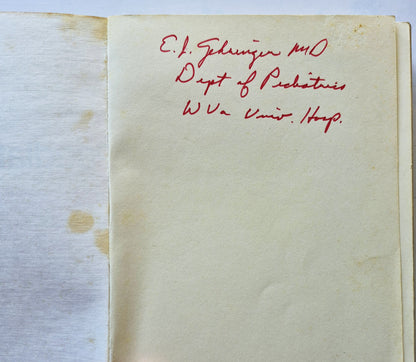 E. J. Gehringer MD
Dept of Pediatrics
W Va Univ. Hosp.